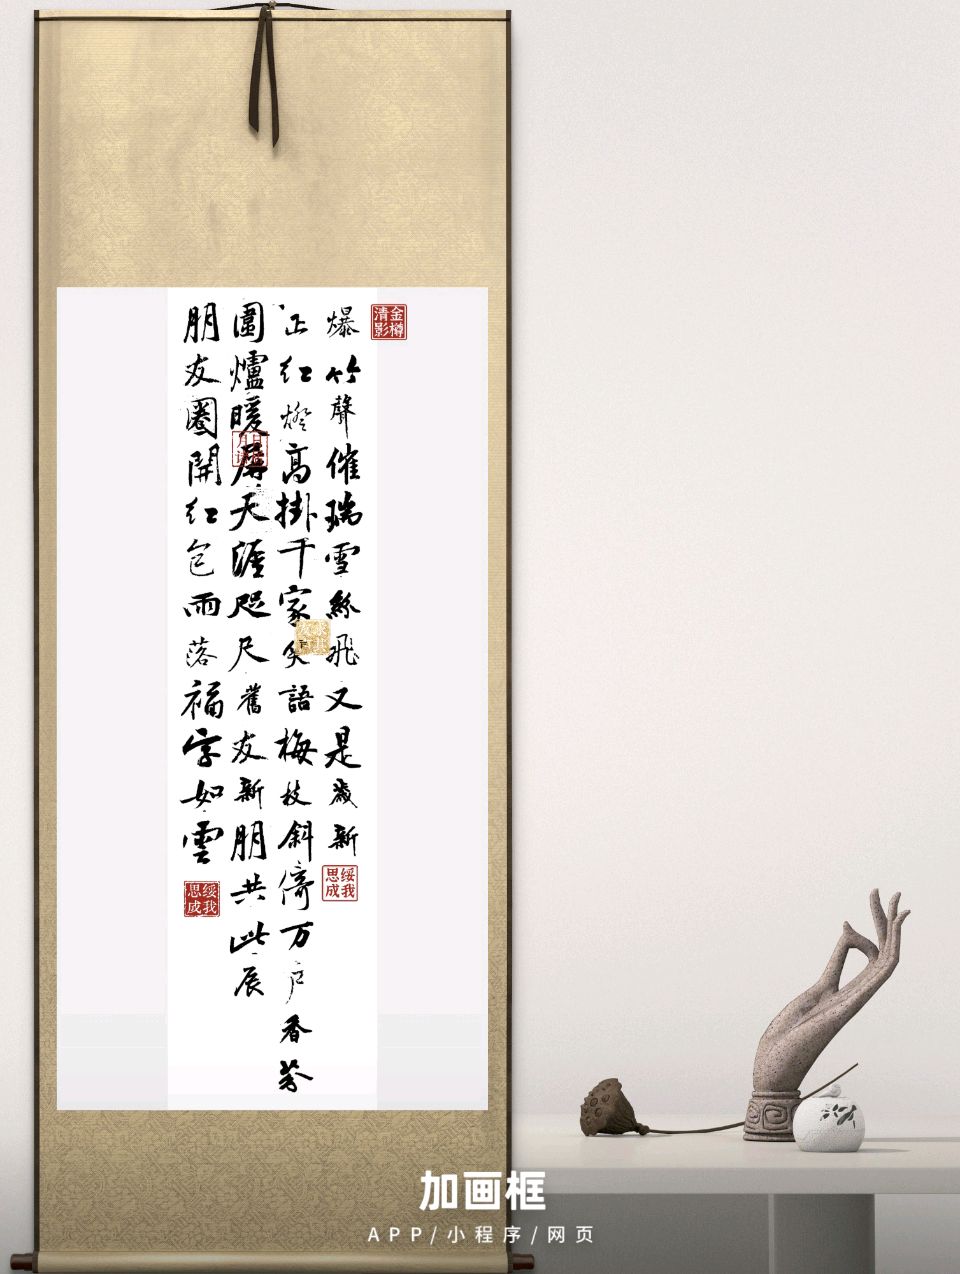 爆竹聲催瑞雪絲飛又是歲新
正紅燈高掛千家笑語梅枝斜倚万戶香芬
圍爐暖屠天涯咫尺舊友新朋共此辰
朋友圈開紅包雨落福字如雲
金樽清影
綏我思成
綏我思成
加画框
APP/小程序/网页